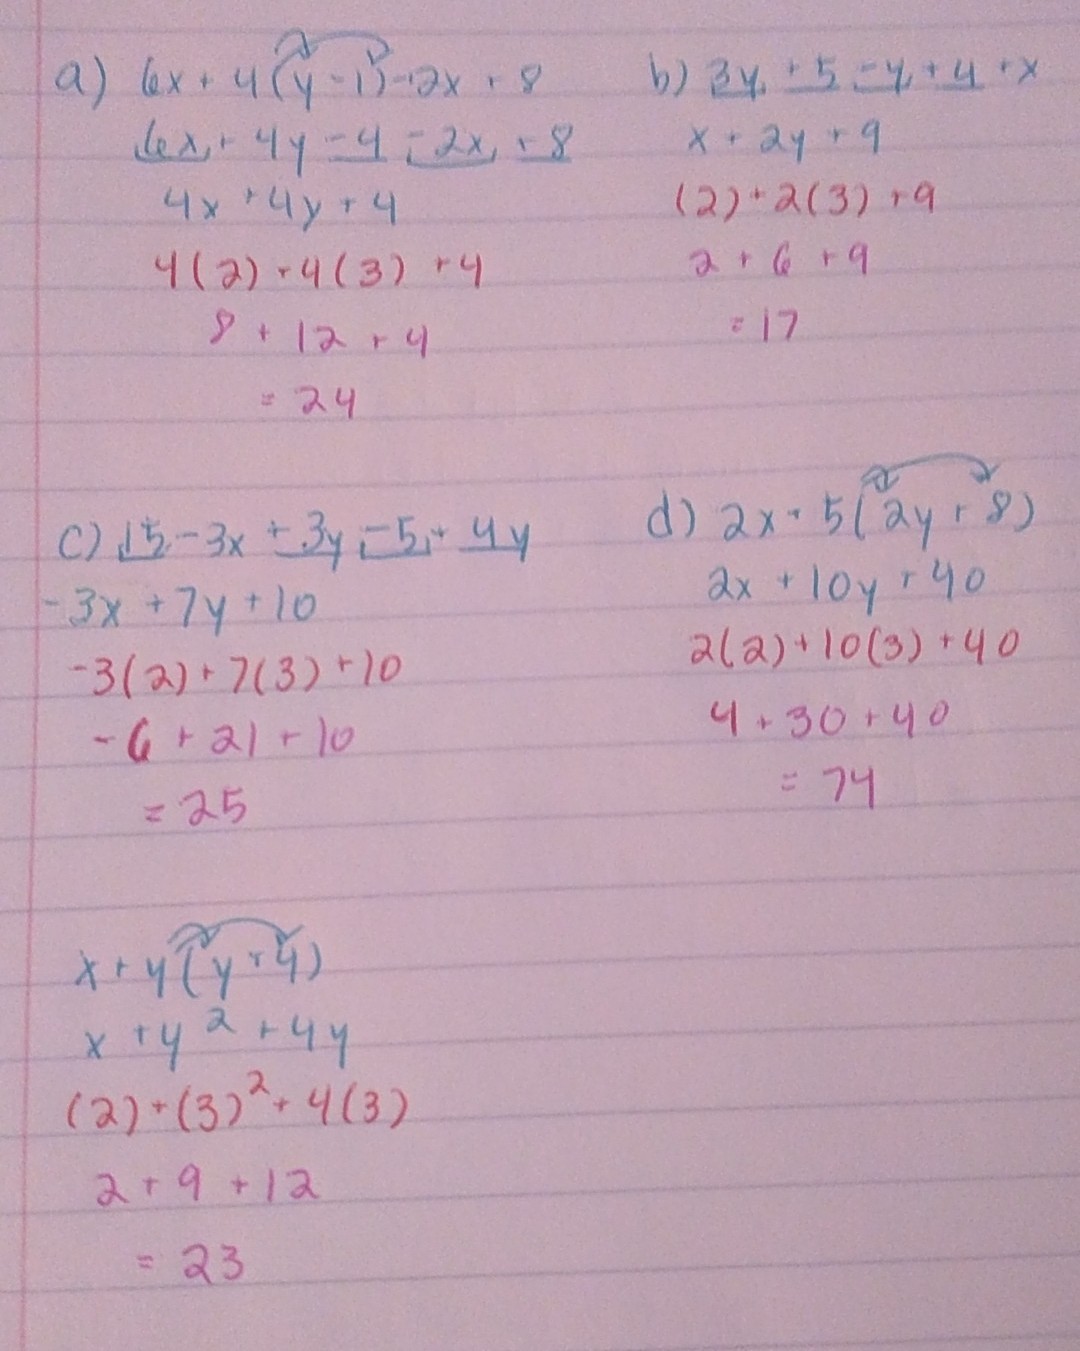 a) 6x + 4(y - 1) - 2x + 8
6x + 4y - 4 - 2x + 8
4x + 4y + 4
4(2) + 4(3) + 4
8 + 12 + 4
= 24
b) 3y + 5 - y + 4 + x
x + 2y + 9
(2) + 2(3) + 9
2 + 6 + 9
= 17
c) 15 - 3x + 3y - 5 + 4y
-3x + 7y + 10
-3(2) + 7(3) + 10
-6 + 21 + 10
= 25
d) 2x + 5(2y + 8)
2x + 10y + 40
2(2) + 10(3) + 40
4 + 30 + 40
= 74
x + y(y + 4)
x + y² + 4y
(2) + (3)² + 4(3)
2 + 9 + 12
= 23